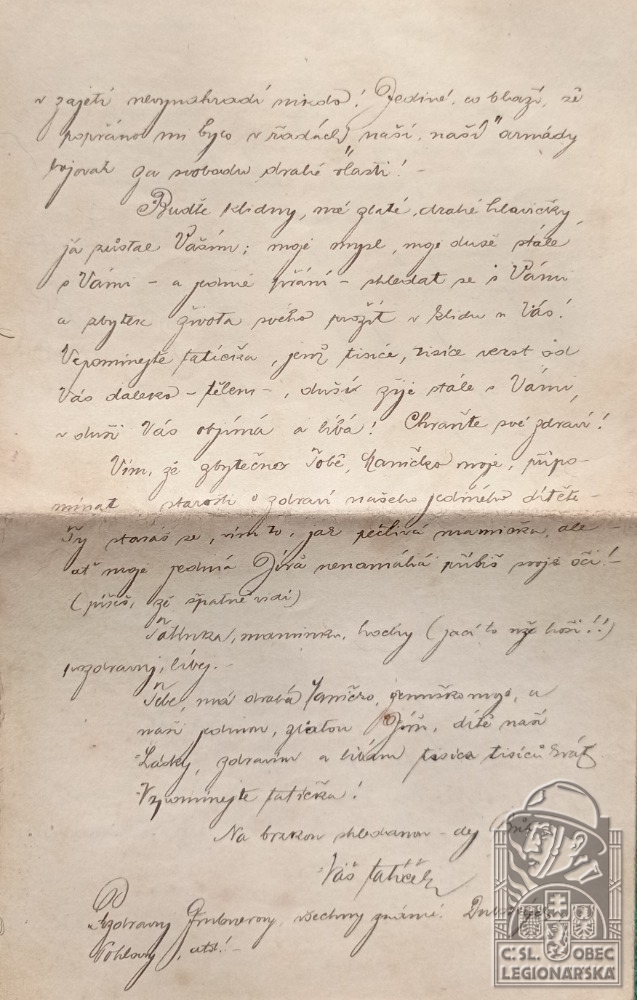 v zajetí nevynahradí nikdo! Jediné, co blaží, že
popřáno mi bylo v řadách naší, "naší" armády
bojovat za svobodu drahé vlasti! -
Buďte klidny, mé zlaté, drahé hlavičky,
já zůstal Vaším; moje mysl, moje duše stále
s Vámi - a jediné přání - shledat se s Vámi
a zbytek života svého prožít v klidu u Vás!
Vzpomínejte tatíčka, jenž tisíce, tisíce verst od
Vás daleko - tělem -, duší žije stále s Vámi,
v duši Vás objímá a líbá! Chraňte své zdraví!
Vím, že zbytečno Tobě, moje, připo-
mínat starosti o zdraví našeho jediného dítěte -
Ty staráš se, vím to, jak pečlivá mamička, ale
ať moje jediná nenamáhá příliš svoje oči! -
(píšeš, že špatně vidí)
Tatínka, maminku, hochy (jací to už hoši!!)
pozdravuj, líbej. -
Tebe, má drahá, moje, a
naši jedinou, zlatou dítě naší
Lásky, zdravím a líbám tisíce tisíců krát
Vzpomínejte tatíčka!
Na brzkou shledanou - dej
Váš tatíček
Pozdravuj všechny známé!
atd! -
Č: SL. OBEC
LEGIONÁŘSKÁ